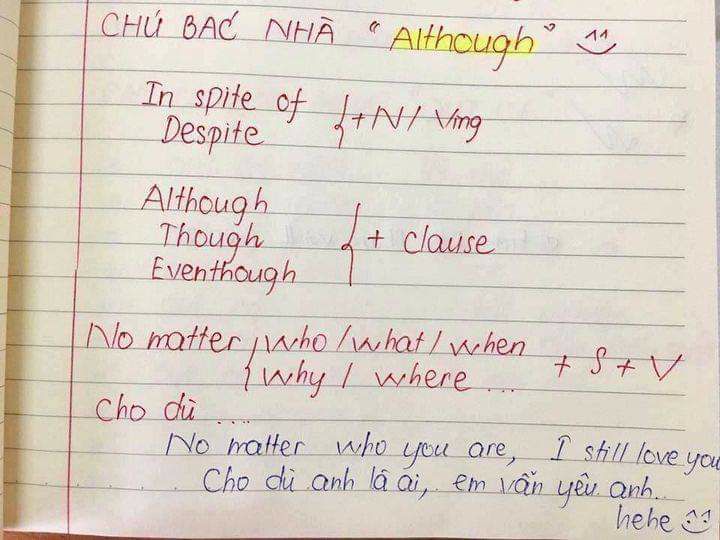 CHÚ BAC NHÀ "Although"
In spite of
Despite
+ N / Ving
Although
Though
Eventhough
+ clause
No matter who / what / when
why / where ... + S + V
cho dù ...
No matter who you are, I still love you
Cho dù anh là ai, em vẫn yêu anh..
hehe